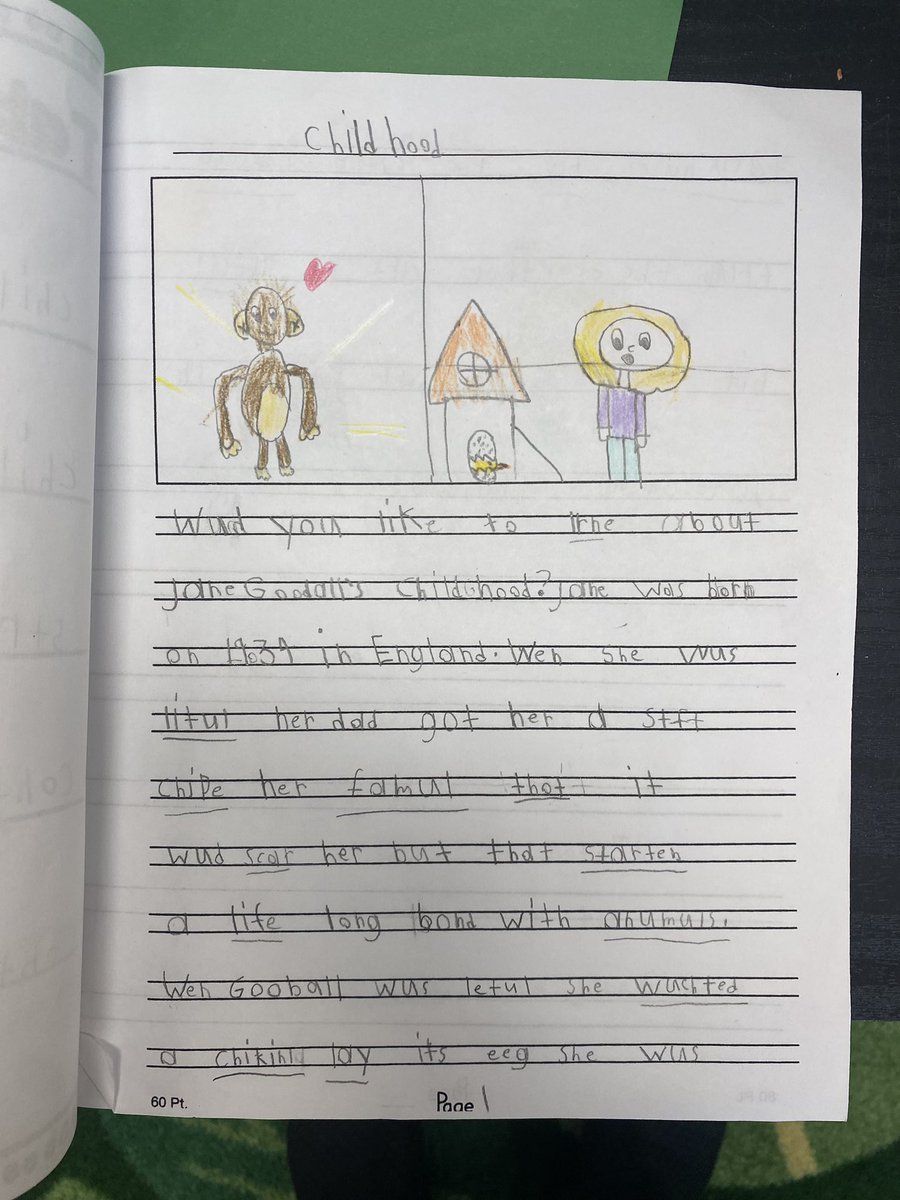 Childhood
Wud you like to lrne about
Jane Goodall's Childhood? Jane was born
on 1934 in England. Wen she wus
litul her dad got her a stft
chipe her famul thot it
wud scar her but that starten
a life long bond with anumuls.
Wen Gooball wus letul she wuchted
a chikin lay its eeg she wus
60 Pt.
Page 1